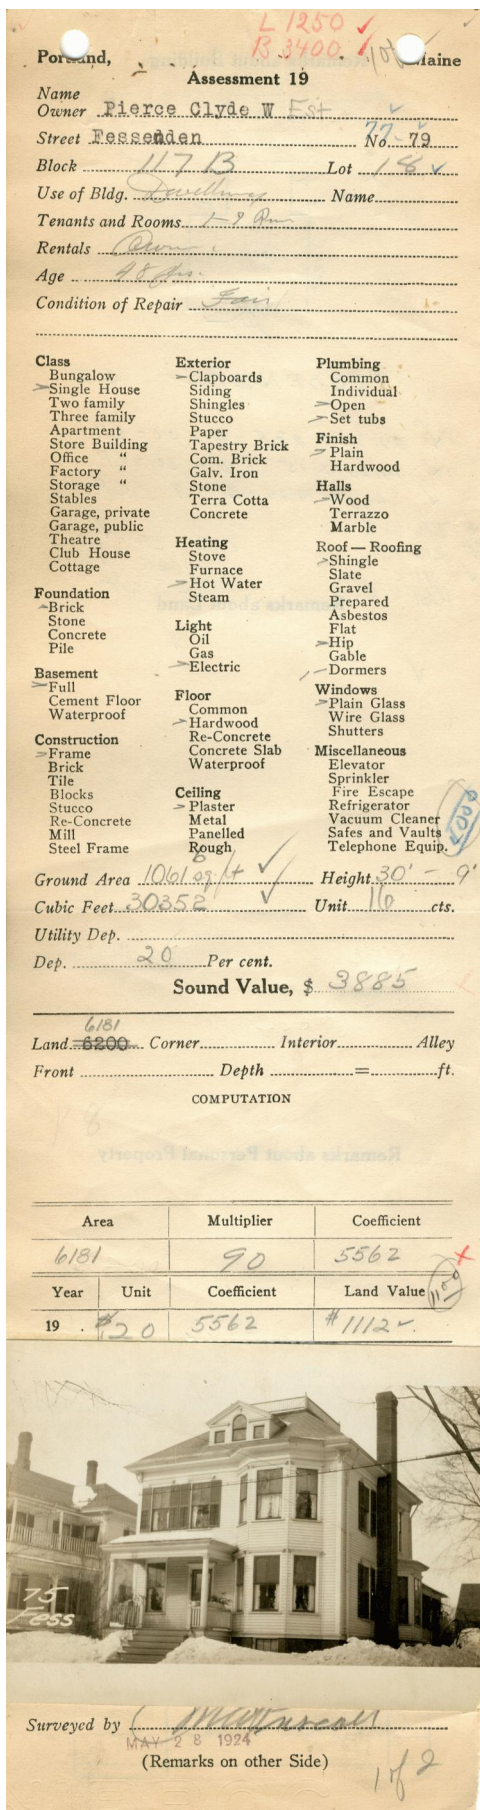 L 1250 ✓
B 3400 ✓
Portland, Maine
Assessment 19
Name
Owner Pierce Clyde W Est
Street Fessenden No. 77-79
Block 117 B Lot 18 ✓
Use of Bldg. Dwelling Name
Tenants and Rooms 1-9 Rm
Rentals Own
Age 48 yrs.
Condition of Repair Fair
Class
Bungalow
Single House
Two family
Three family
Apartment
Store Building
Office "
Factory "
Storage "
Stables
Garage, private
Garage, public
Theatre
Club House
Cottage
Foundation
Brick
Stone
Concrete
Pile
Basement
Full
Cement Floor
Waterproof
Construction
Frame
Brick
Tile
Blocks
Stucco
Re-Concrete
Mill
Steel Frame
Exterior
Clapboards
Siding
Shingles
Stucco
Paper
Tapestry Brick
Com. Brick
Galv. Iron
Stone
Terra Cotta
Concrete
Heating
Stove
Furnace
Hot Water
Steam
Light
Oil
Gas
Electric
Floor
Common
Hardwood
Re-Concrete
Concrete Slab
Waterproof
Ceiling
Plaster
Metal
Panelled
Rough
Plumbing
Common
Individual
Open
Set tubs
Finish
Plain
Hardwood
Halls
Wood
Terrazzo
Marble
Roof — Roofing
Shingle
Slate
Gravel
Prepared
Asbestos
Flat
Hip
Gable
Dormers
Windows
Plain Glass
Wire Glass
Shutters
Miscellaneous
Elevator
Sprinkler
Fire Escape
Refrigerator
Vacuum Cleaner
Safes and Vaults
Telephone Equip.
Ground Area 1061 sq ft ✓ Height 30' - 9'
Cubic Feet 30352 ✓ Unit 16 cts.
Utility Dep.
Dep. 20 Per cent.
Sound Value, $ 3885
6181
Land 6200 Corner Interior Alley
Front Depth = ft.
COMPUTATION
Remarks about Personal Property
Area Multiplier Coefficient
6181 90 5562
Year Unit Coefficient Land Value 1100
19 . $20 5562 #1112 ✓
75
Fess
Surveyed by
MAY 28 1924
(Remarks on other Side)
1 of 2